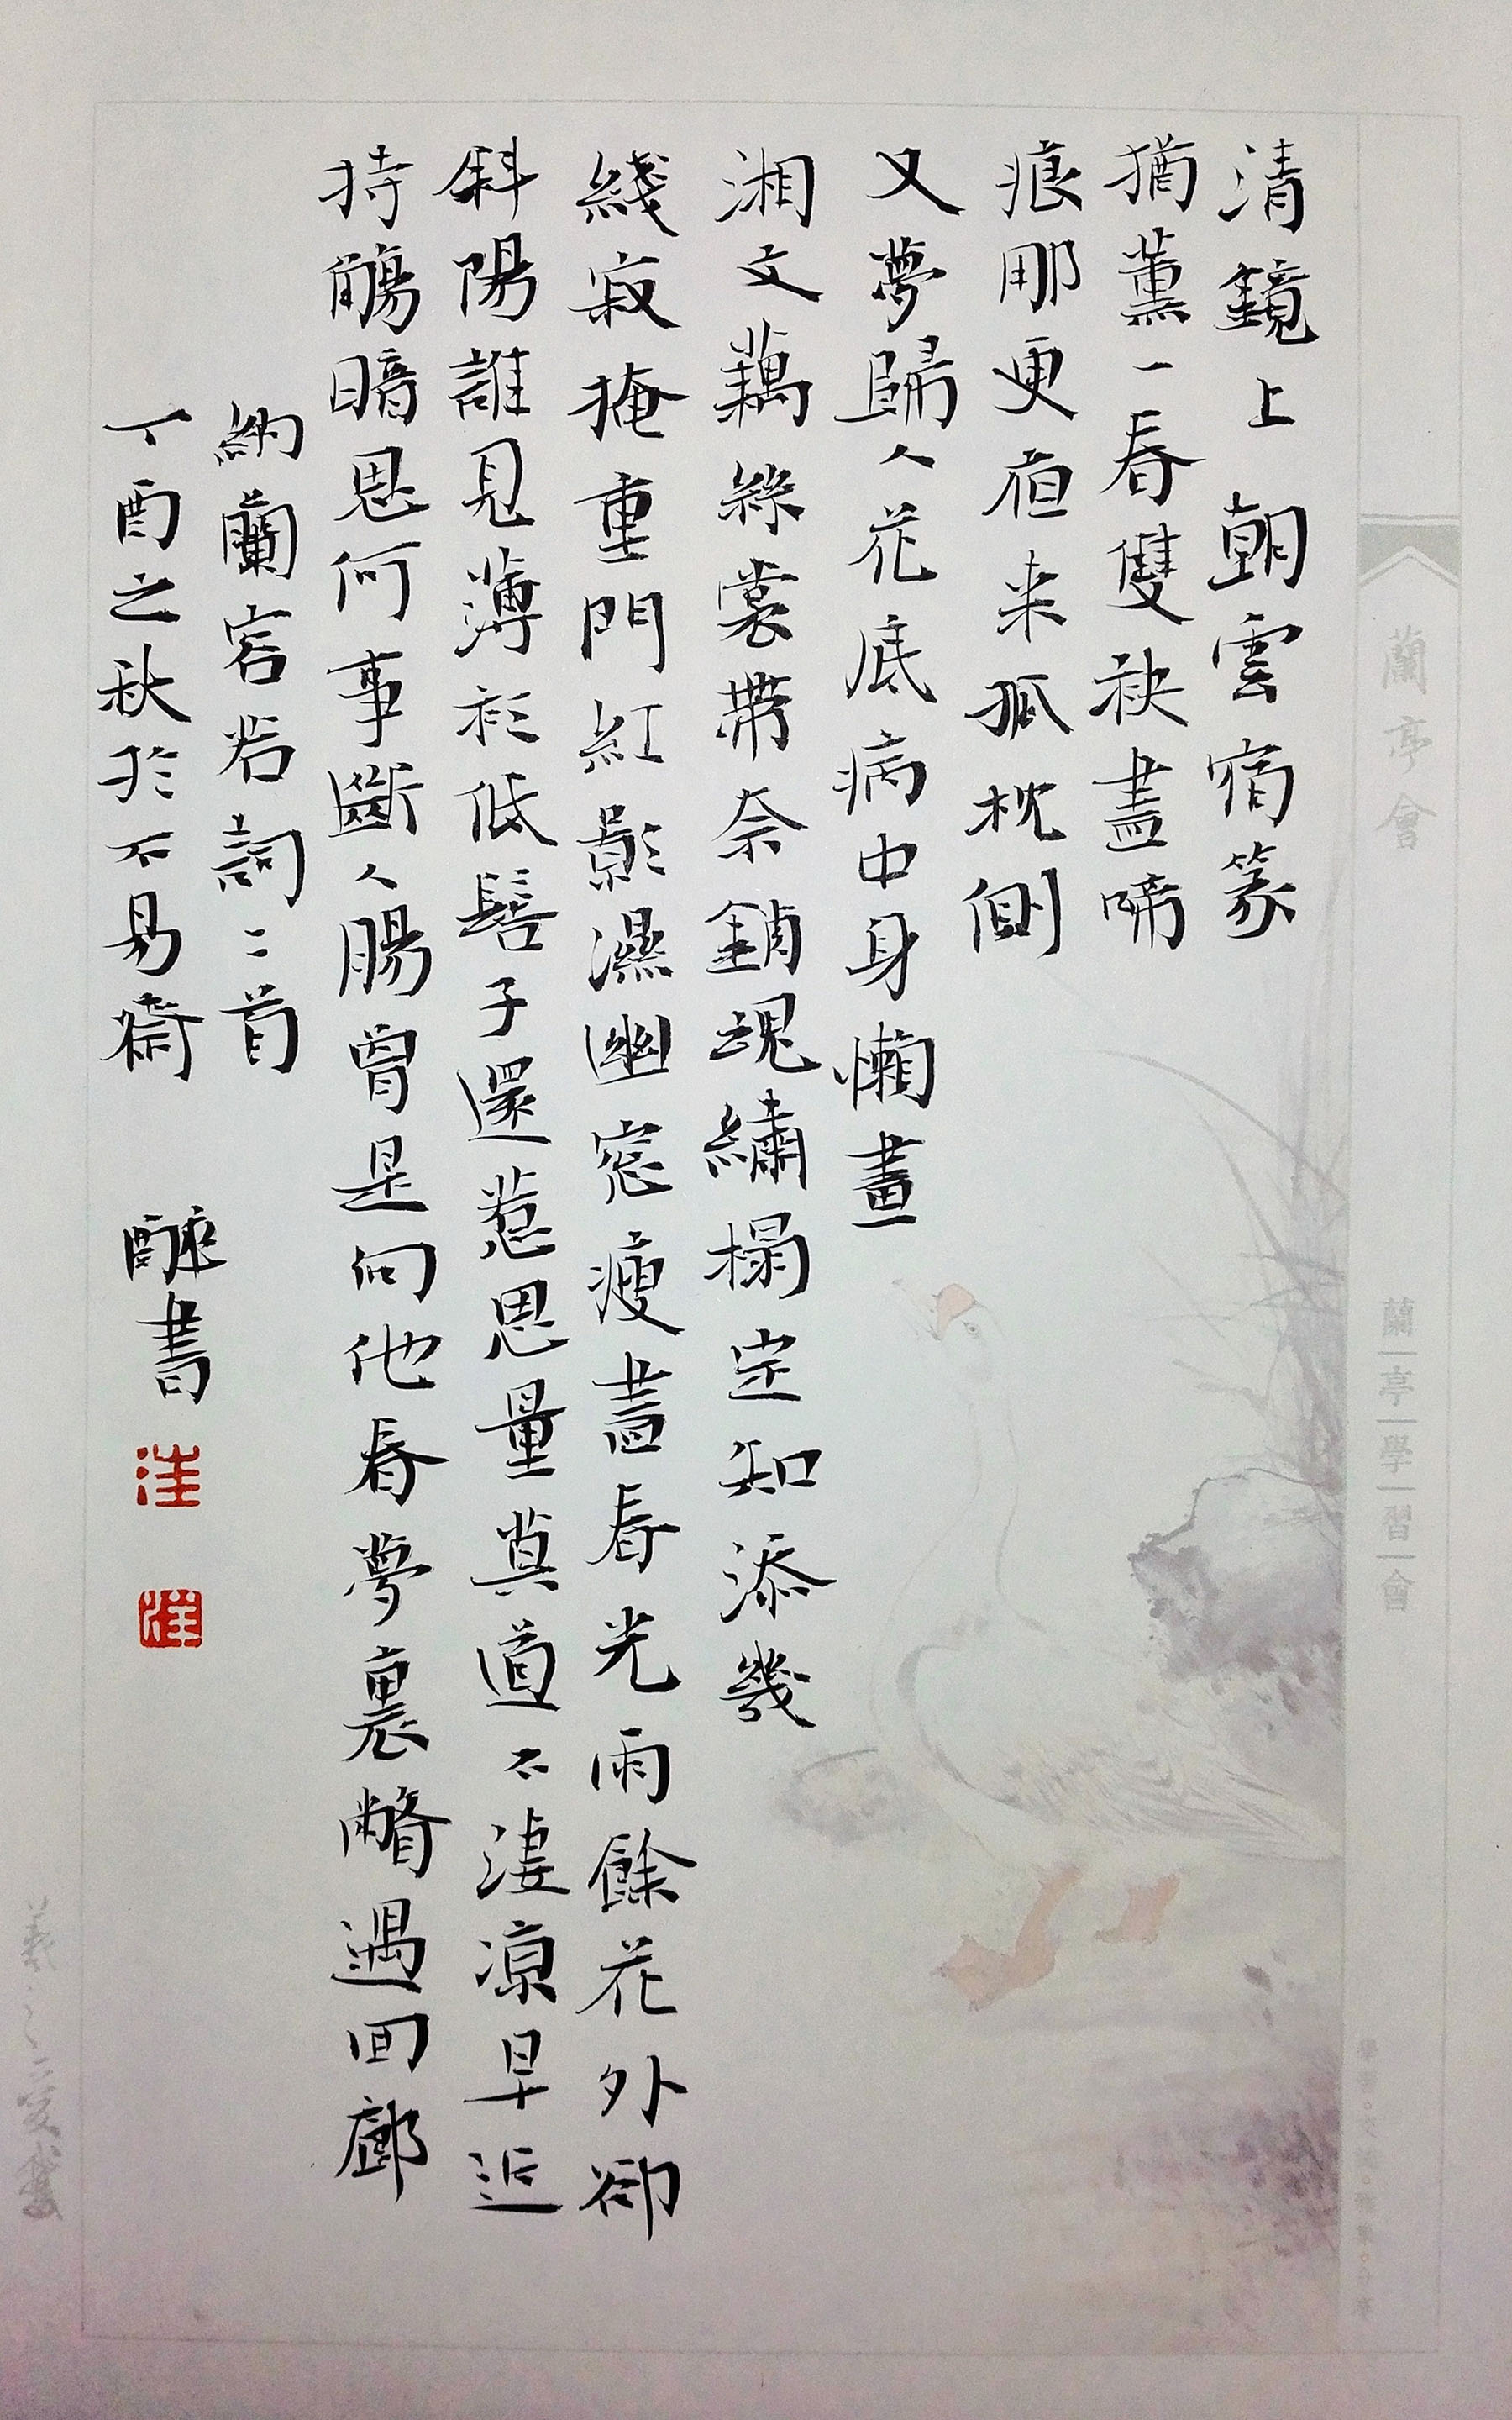 蘭亭會
蘭亭學習會
清鏡上朝雲宿篆
猶薰一春雙袂盡啼
痕那更夜来孤枕側
又夢歸人花底病中身懶畫
湘文藕絲裳帶奈銷魂繡榻定知添幾
綫寂掩重門紅影濕幽窓瘦盡春光雨餘花外卻
斜陽誰見薄衫低髻子還惹思量莫道不淒涼早近
持觴暗思何事斷人腸曾是向他春夢裏瞥遇回廊
納蘭容若詞二首
丁酉之秋於不易齋 書